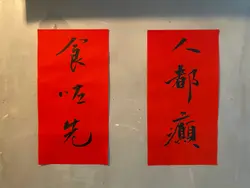 人都癲
食咗先